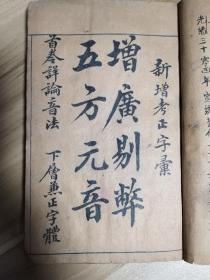 新增考正字彙
增廣剔弊
五方元音
首卷詳論音法
下層兼正字體